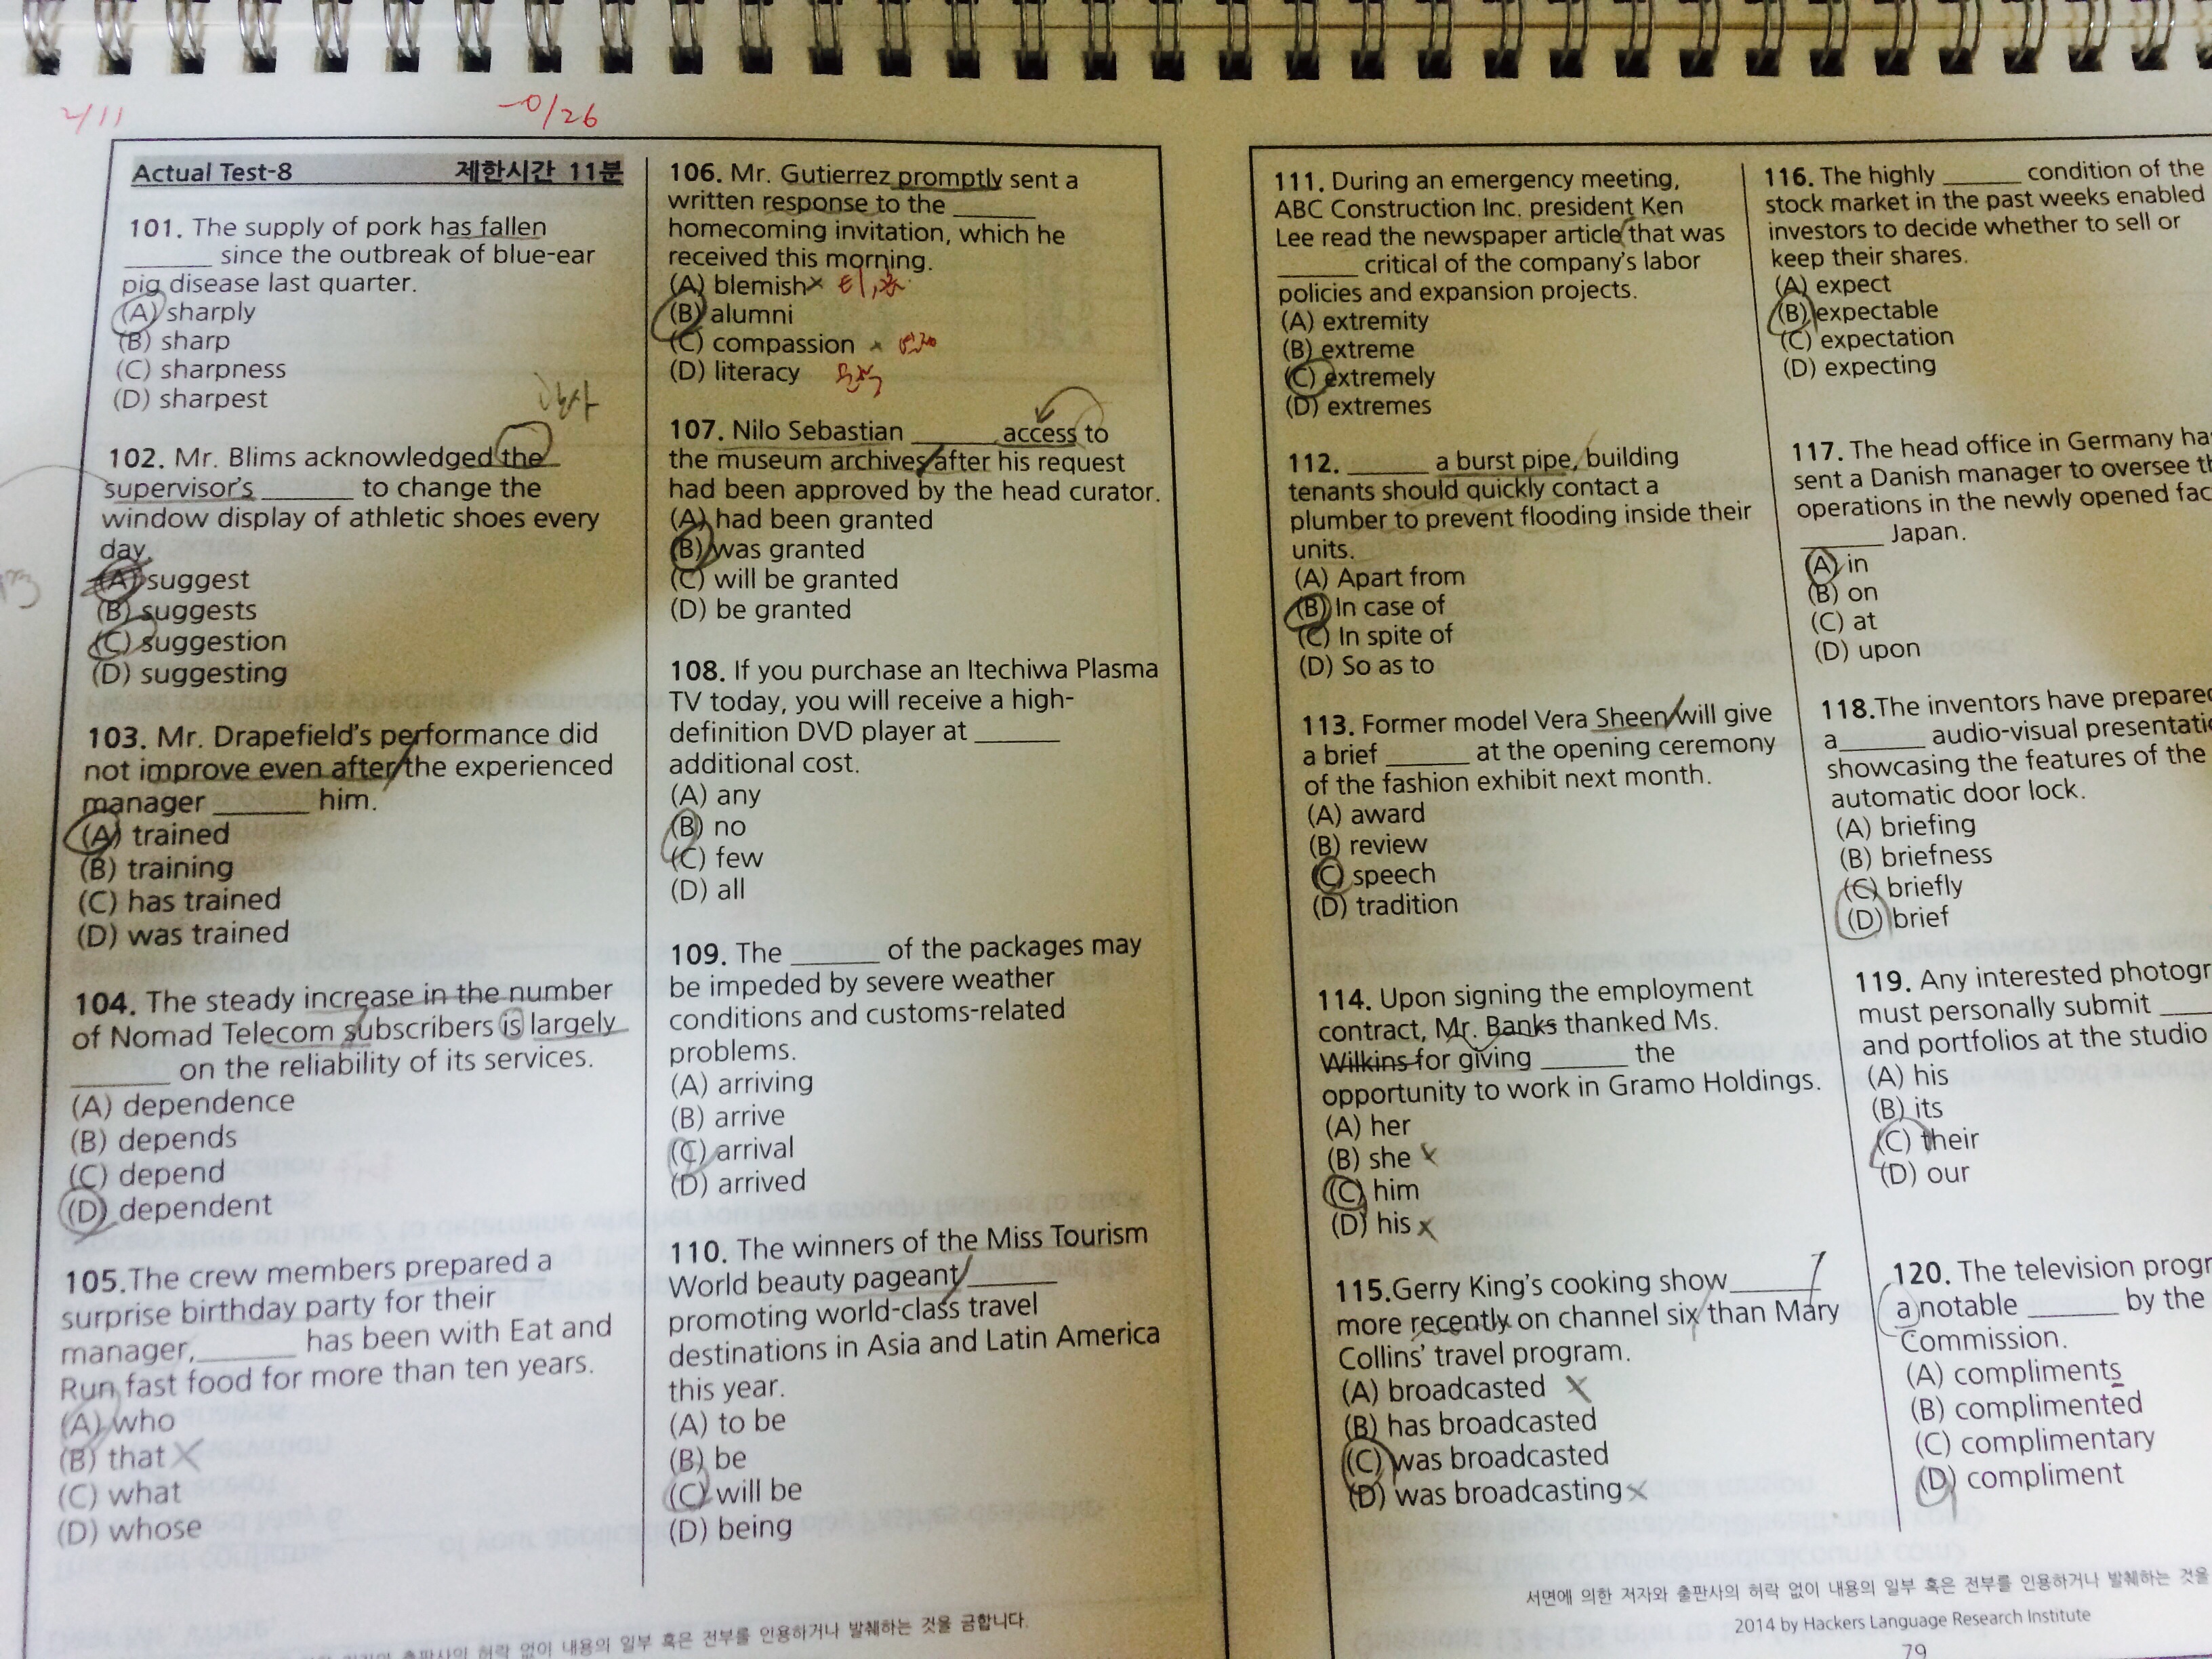 2/11
-0/26
Actual Test-8 제한시간 11분
101. The supply of pork has fallen
______ since the outbreak of blue-ear
pig disease last quarter.
(A) sharply
(B) sharp
(C) sharpness
(D) sharpest
102. Mr. Blims acknowledged the
supervisor's ______ to change the
window display of athletic shoes every
day.
(A) suggest
(B) suggests
(C) suggestion
(D) suggesting
103. Mr. Drapefield's performance did
not improve even after the experienced
manager ______ him.
(A) trained
(B) training
(C) has trained
(D) was trained
104. The steady increase in the number
of Nomad Telecom subscribers is largely
______ on the reliability of its services.
(A) dependence
(B) depends
(C) depend
(D) dependent
105.The crew members prepared a
surprise birthday party for their
manager,______ has been with Eat and
Run fast food for more than ten years.
(A) who
(B) that
(C) what
(D) whose
106. Mr. Gutierrez promptly sent a
written response to the ______
homecoming invitation, which he
received this morning.
(A) blemish
(B) alumni
(C) compassion
(D) literacy
107. Nilo Sebastian ______ access to
the museum archives after his request
had been approved by the head curator.
(A) had been granted
(B) was granted
(C) will be granted
(D) be granted
108. If you purchase an Itechiwa Plasma
TV today, you will receive a high-
definition DVD player at ______
additional cost.
(A) any
(B) no
(C) few
(D) all
109. The ______ of the packages may
be impeded by severe weather
conditions and customs-related
problems.
(A) arriving
(B) arrive
(C) arrival
(D) arrived
110. The winners of the Miss Tourism
World beauty pageant ______
promoting world-class travel
destinations in Asia and Latin America
this year.
(A) to be
(B) be
(C) will be
(D) being
허락 없이 내용의 일부 혹은 전부를 인용하거나 발췌하는 것을 금합니다.
111. During an emergency meeting,
ABC Construction Inc. president Ken
Lee read the newspaper article that was
______ critical of the company's labor
policies and expansion projects.
(A) extremity
(B) extreme
(C) extremely
(D) extremes
112. ______ a burst pipe, building
tenants should quickly contact a
plumber to prevent flooding inside their
units.
(A) Apart from
(B) In case of
(C) In spite of
(D) So as to
113. Former model Vera Sheen will give
a brief ______ at the opening ceremony
of the fashion exhibit next month.
(A) award
(B) review
(C) speech
(D) tradition
114. Upon signing the employment
contract, Mr. Banks thanked Ms.
Wilkins for giving ______ the
opportunity to work in Gramo Holdings.
(A) her
(B) she
(C) him
(D) his
115.Gerry King's cooking show______
more recently on channel six than Mary
Collins' travel program.
(A) broadcasted
(B) has broadcasted
(C) was broadcasted
(D) was broadcasting
116. The highly ______ condition of the
stock market in the past weeks enabled
investors to decide whether to sell or
keep their shares.
(A) expect
(B) expectable
(C) expectation
(D) expecting
117. The head office in Germany ha
sent a Danish manager to oversee th
operations in the newly opened fac
______ Japan.
(A) in
(B) on
(C) at
(D) upon
118.The inventors have prepared
a______ audio-visual presentati
showcasing the features of the
automatic door lock.
(A) briefing
(B) briefness
(C) briefly
(D) brief
119. Any interested photogr
must personally submit ___
and portfolios at the studio
(A) his
(B) its
(C) their
(D) our
120. The television progr
a notable ______ by the
Commission.
(A) compliments
(B) complimented
(C) complimentary
(D) compliment
서면에 의한 저자와 출판사의 허락 없이 내용의 일부 혹은 전부를 인용하거나 발췌하는 것을
2014 by Hackers Language Research Institute
79